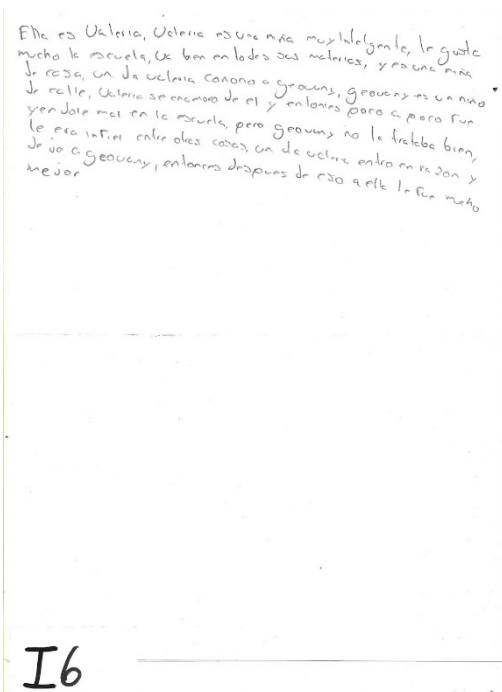 Ella es Valeria, Valeria es una niña muy inteligente, le gusta
mucho la escuela, va bien en todas sus materias, y es una niña
de casa, un dia valeria conocio a geovany, geovany es un niño
de calle, Valeria se enamoro de el y entonces poco a poco fue
yendole mal en la escuela, pero geovany no la trataba bien,
le era infiel entre otras cosas, un dia valeria entro en razon y
dejo a geovany, entonces despues de eso a ella le fue mucho
mejor
I6